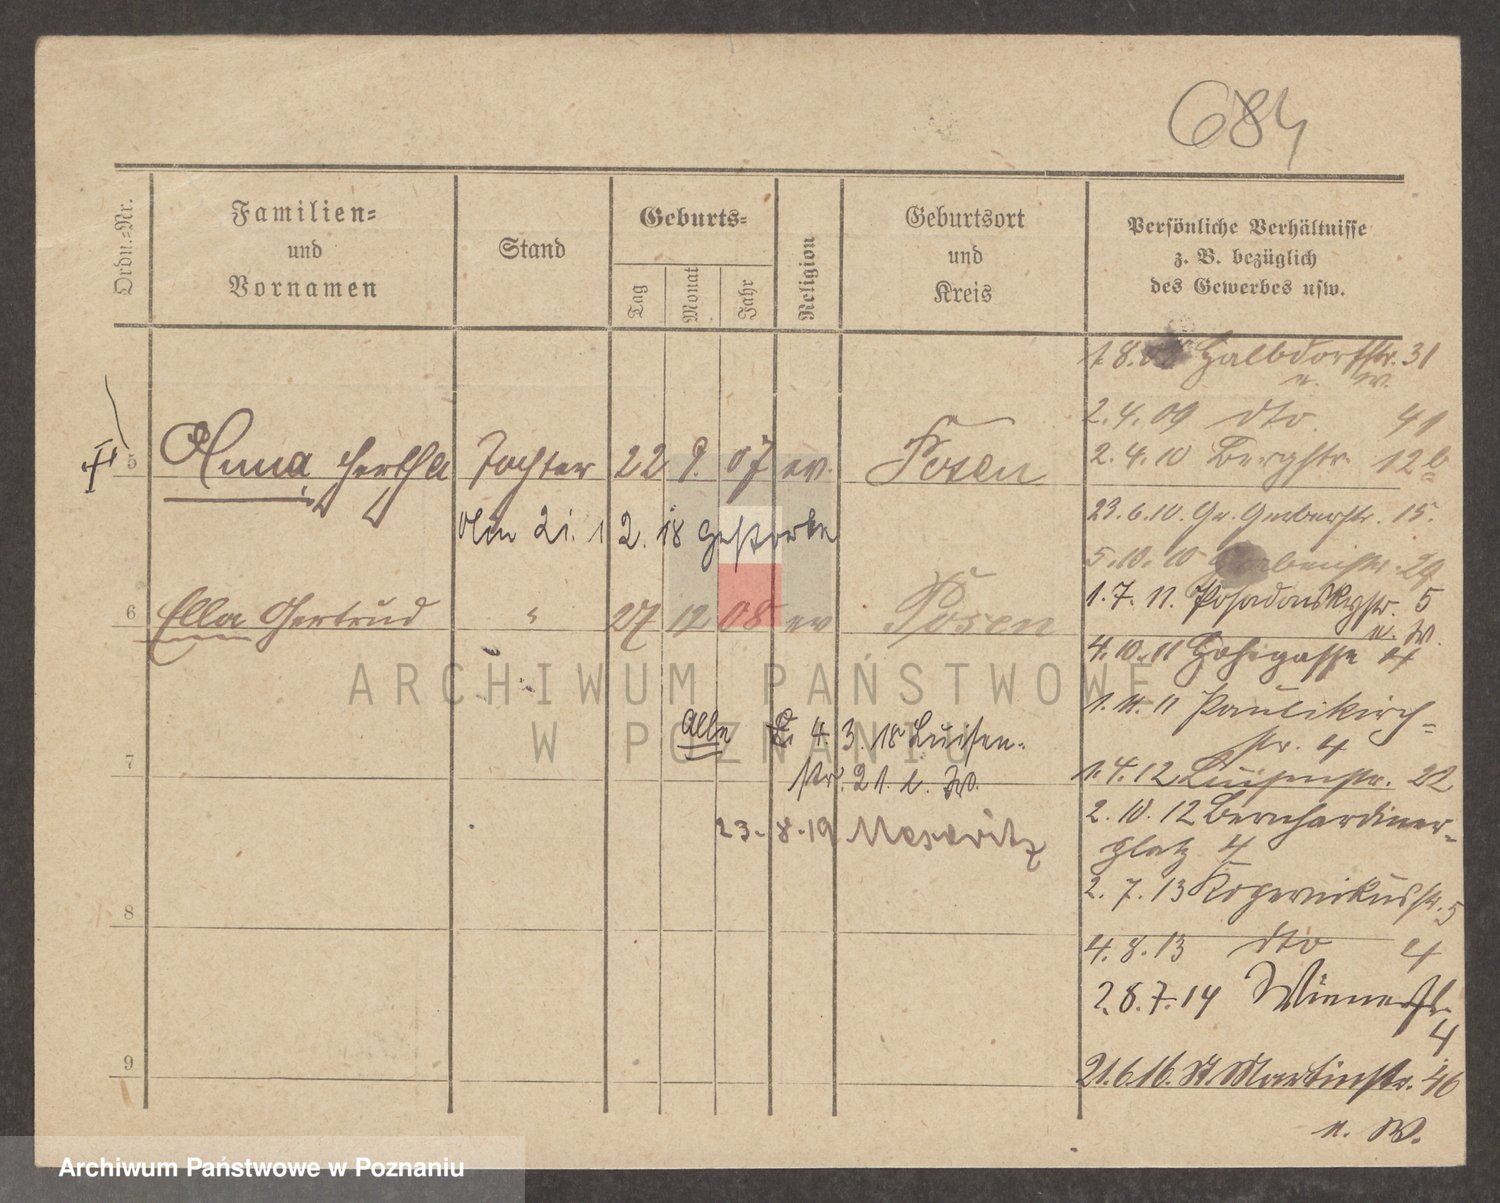 684
Ordn.-Nr.
Familien-
und
Vornamen
Stand
Geburts-
Tag
Monat
Jahr
Religion
Geburtsort
und
Kreis
Persönliche Verhältnisse
z. B. bezüglich
des Gewerbes usw.
1.8. Halbdorfstr. 31
u. W.
2.4.09 dto. 41
5 Anna Hertha Tochter 22 9. 07 ev. Posen
2.4.10 Bergstr. 12b
23.6.10. Gr. Gerberstr. 15.
2. 18 gestorben
5.10.10 29
1.7.11. Posadowskystr. 5
u. W.
6 Ella Gertrud " 27 12 08 ev Posen
4.10.11 Hohegasse 4
1.11.11 Paulikirch-
str. 4
Alle 4.3.18 Luisen-
str. 21. b. W.
7
1.4.12 Luisenstr. 22
2.10.12 Bernhardiner-
platz 4
23.-8.-19 Meseritz
2.7.13 Kopernikusstr. 5
8
4.8.13 dto 4
28.7.14 Wienerstr.
4
9
21.6.16. St. Martinstr. 46
u. W.
ARCHIWUM PAŃSTWOWE
W POZNANIU
Archiwum Państwowe w Poznaniu